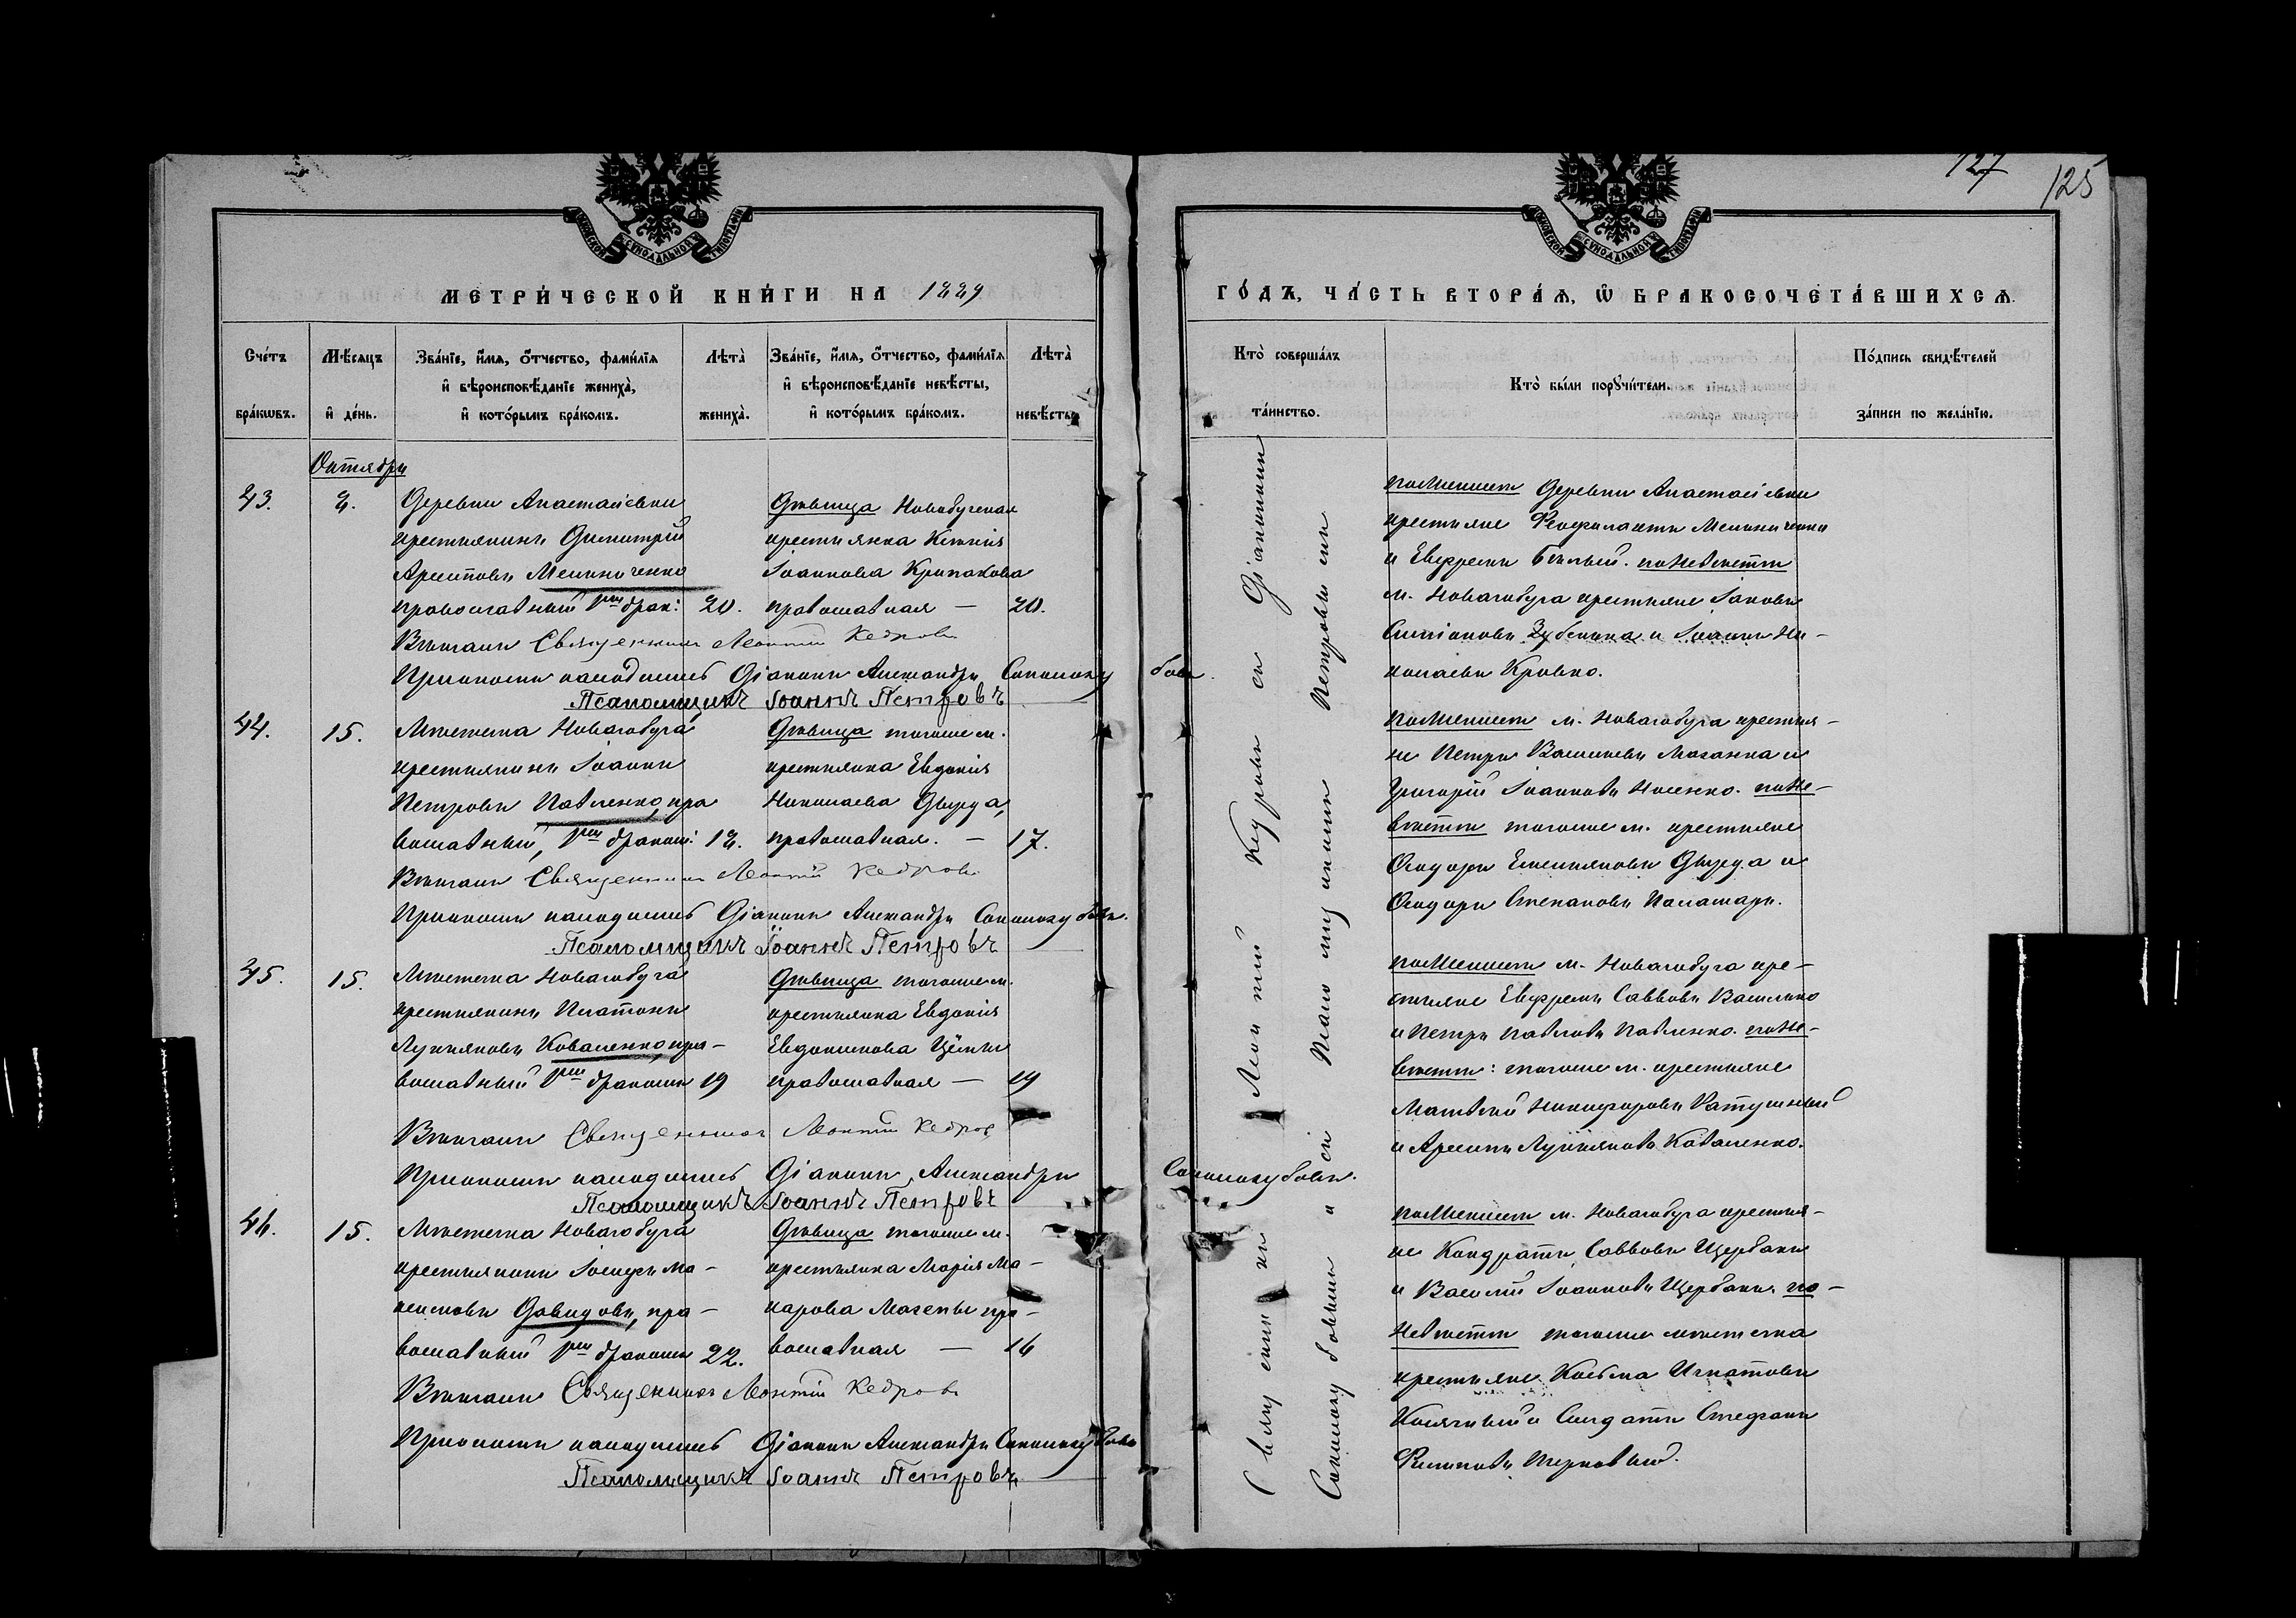 127
125
МОСКОВСКОЙ СѴНОДАЛЬНОЙ ТИПОГРАФІИ
МЕТРИ́ЧЕСКОЙ КНИ́ГИ НА 1889
Сче́тъ бра́кѡвъ.
Мѣ́сяцъ и҆ де́нь.
Зва́нїе, и҆́мя, ѻ҆́тчество, фами́лїя
и҆ вѣроисповѣ́данїе жениха̀,
и҆ кото́рымъ бра́комъ.
Лѣта̀ жениха̀.
Зва́нїе, и҆́мя, ѻ҆́тчество, фами́лїя
и҆ вѣроисповѣ́данїе невѣ́сты,
и҆ кото́рымъ бра́комъ.
Лѣта̀ невѣ́сты.
Октября
43. 8. Деревни Анастасіевки
крестьянинъ Димитрій
Арсеніовъ Мельниченко
православный 1мъ брак: 20.
Дѣвица Новобугская
крестьянка Ксенія
Іоаннова Крипакова
православная — 20.
Вѣнчалъ Священникъ Леонтій Кедровъ
Приколѣ находились Діаконъ Александръ Сокологубовъ.
Псаломщикъ Іоаннъ Петровъ
44. 15. Мѣстечка Новагобуга
крестьянинъ Іоаннъ
Петровъ Павленко, пра
вославный, 1мъ бракомъ: 18.
Дѣвица тогоже м.
крестьянка Евдокія
Николаева Дыуда,
православная. — 17.
Вѣнчалъ Священникъ Леонтій Кедровъ
находились Діаконъ Александръ Сокологубовъ.
Псаломщикъ Іоаннъ Петровъ
45. 15. Мѣстечка Новагобуга
крестьянинъ Платонъ
Лукіяновъ Коваленко, пра-
вославный 1мъ бракомъ 19
Дѣвица тогоже м.
крестьянка Евдокія
Евдокимова
православная — 19
Вѣнчалъ Священникъ Леонтій Кедровъ
находились Діаконъ Александръ Сокологубовъ.
Псаломщикъ Іоаннъ Петровъ
46. 15. Мѣстечка Новагобуга
крестьянинъ Іосифъ Ма-
ксимовъ Давидовъ, пра-
вославный 1мъ бракомъ 22.
Дѣвица тогоже м.
крестьянка Марія Ма-
карова Мазепы пра-
вославная — 16
Вѣнчалъ Священникъ Леонтій Кедровъ
находились Діаконъ Александръ Сокологубовъ
Псаломщикъ Іоаннъ Петровъ
ГО́ДЪ, ЧА́СТЬ ВТОРА́Ѧ, Ѽ БРАКОСОЧЕТА́ВШИХСѦ.
Кто̀ соверша́лъ та́инство.
Кто̀ бы́ли порꙋчи́тели.
По́дпись свидѣ́телей за́писи по жела́нїю.
Священникъ Леонтій Кедровъ съ Діакономъ
Сокологубовымъ и съ Псаломщикомъ Петровымъ
по Женихѣ Деревни Анастасіевки
крестьяне Феофилактъ Мельниченко
и Евфремъ Бѣлый. по Невѣстѣ
м. Новагобуга крестьяне Іаковъ
Зубенка и Іоаннъ Ни-
колаевъ Кровко.
по Женихѣ м. Новагобуга крестья-
не Петръ Васильевъ Мазанка и
Григорій Іоанновъ Носенко. по Не-
вѣстѣ тогоже м. крестьяне
Ѳеодоръ Емельяновъ Дыуда и
Ѳеодоръ Степановъ Паламарь.
по Женихѣ м. Новагобуга кре-
стьяне Евфремъ Саввовъ Василько
и Петръ Павловъ Павленко. по Не-
вѣстѣ: тогоже м. крестьяне
Матвѣй Никифоровъ Ратушный
и Арсеній Лукіяновъ Коваленко.
по Женихѣ м. Новагобуга крестья-
не Кондратъ Саввовъ Щербань
и Василій Іоанновъ Щербань. по
Невѣстѣ тогоже мѣстечка
крестьяне Косьма Игнатовъ
и Солдатъ Стефанъ
Филиповъ